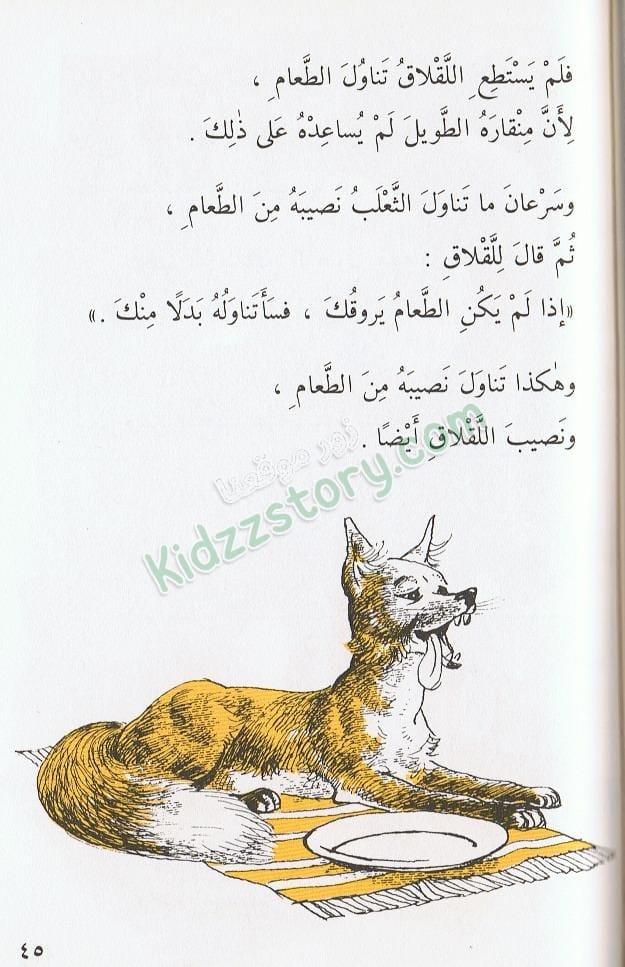 فَلَمْ يَسْتَطِعِ اللَّقْلاقُ تَناوُلَ الطَّعامِ ،
لِأَنَّ مِنْقارَهُ الطَّويلَ لَمْ يُساعِدْهُ عَلى ذٰلِكَ .
وسَرْعانَ ما تَناوَلَ الثَّعْلَبُ نَصيبَهُ مِنَ الطَّعامِ ،
ثُمَّ قالَ لِلَّقْلاقِ :
«إذا لَمْ يَكُنِ الطَّعامُ يَروقُكَ ، فسَأَتَناوَلُهُ بَدَلًا مِنْكَ .»
وهٰكذا تَناوَلَ نَصيبَهُ مِنَ الطَّعامِ ،
ونَصيبَ اللَّقْلاقِ أَيْضًا .
زور موقعنا
Kidzzstory.com
٤٥